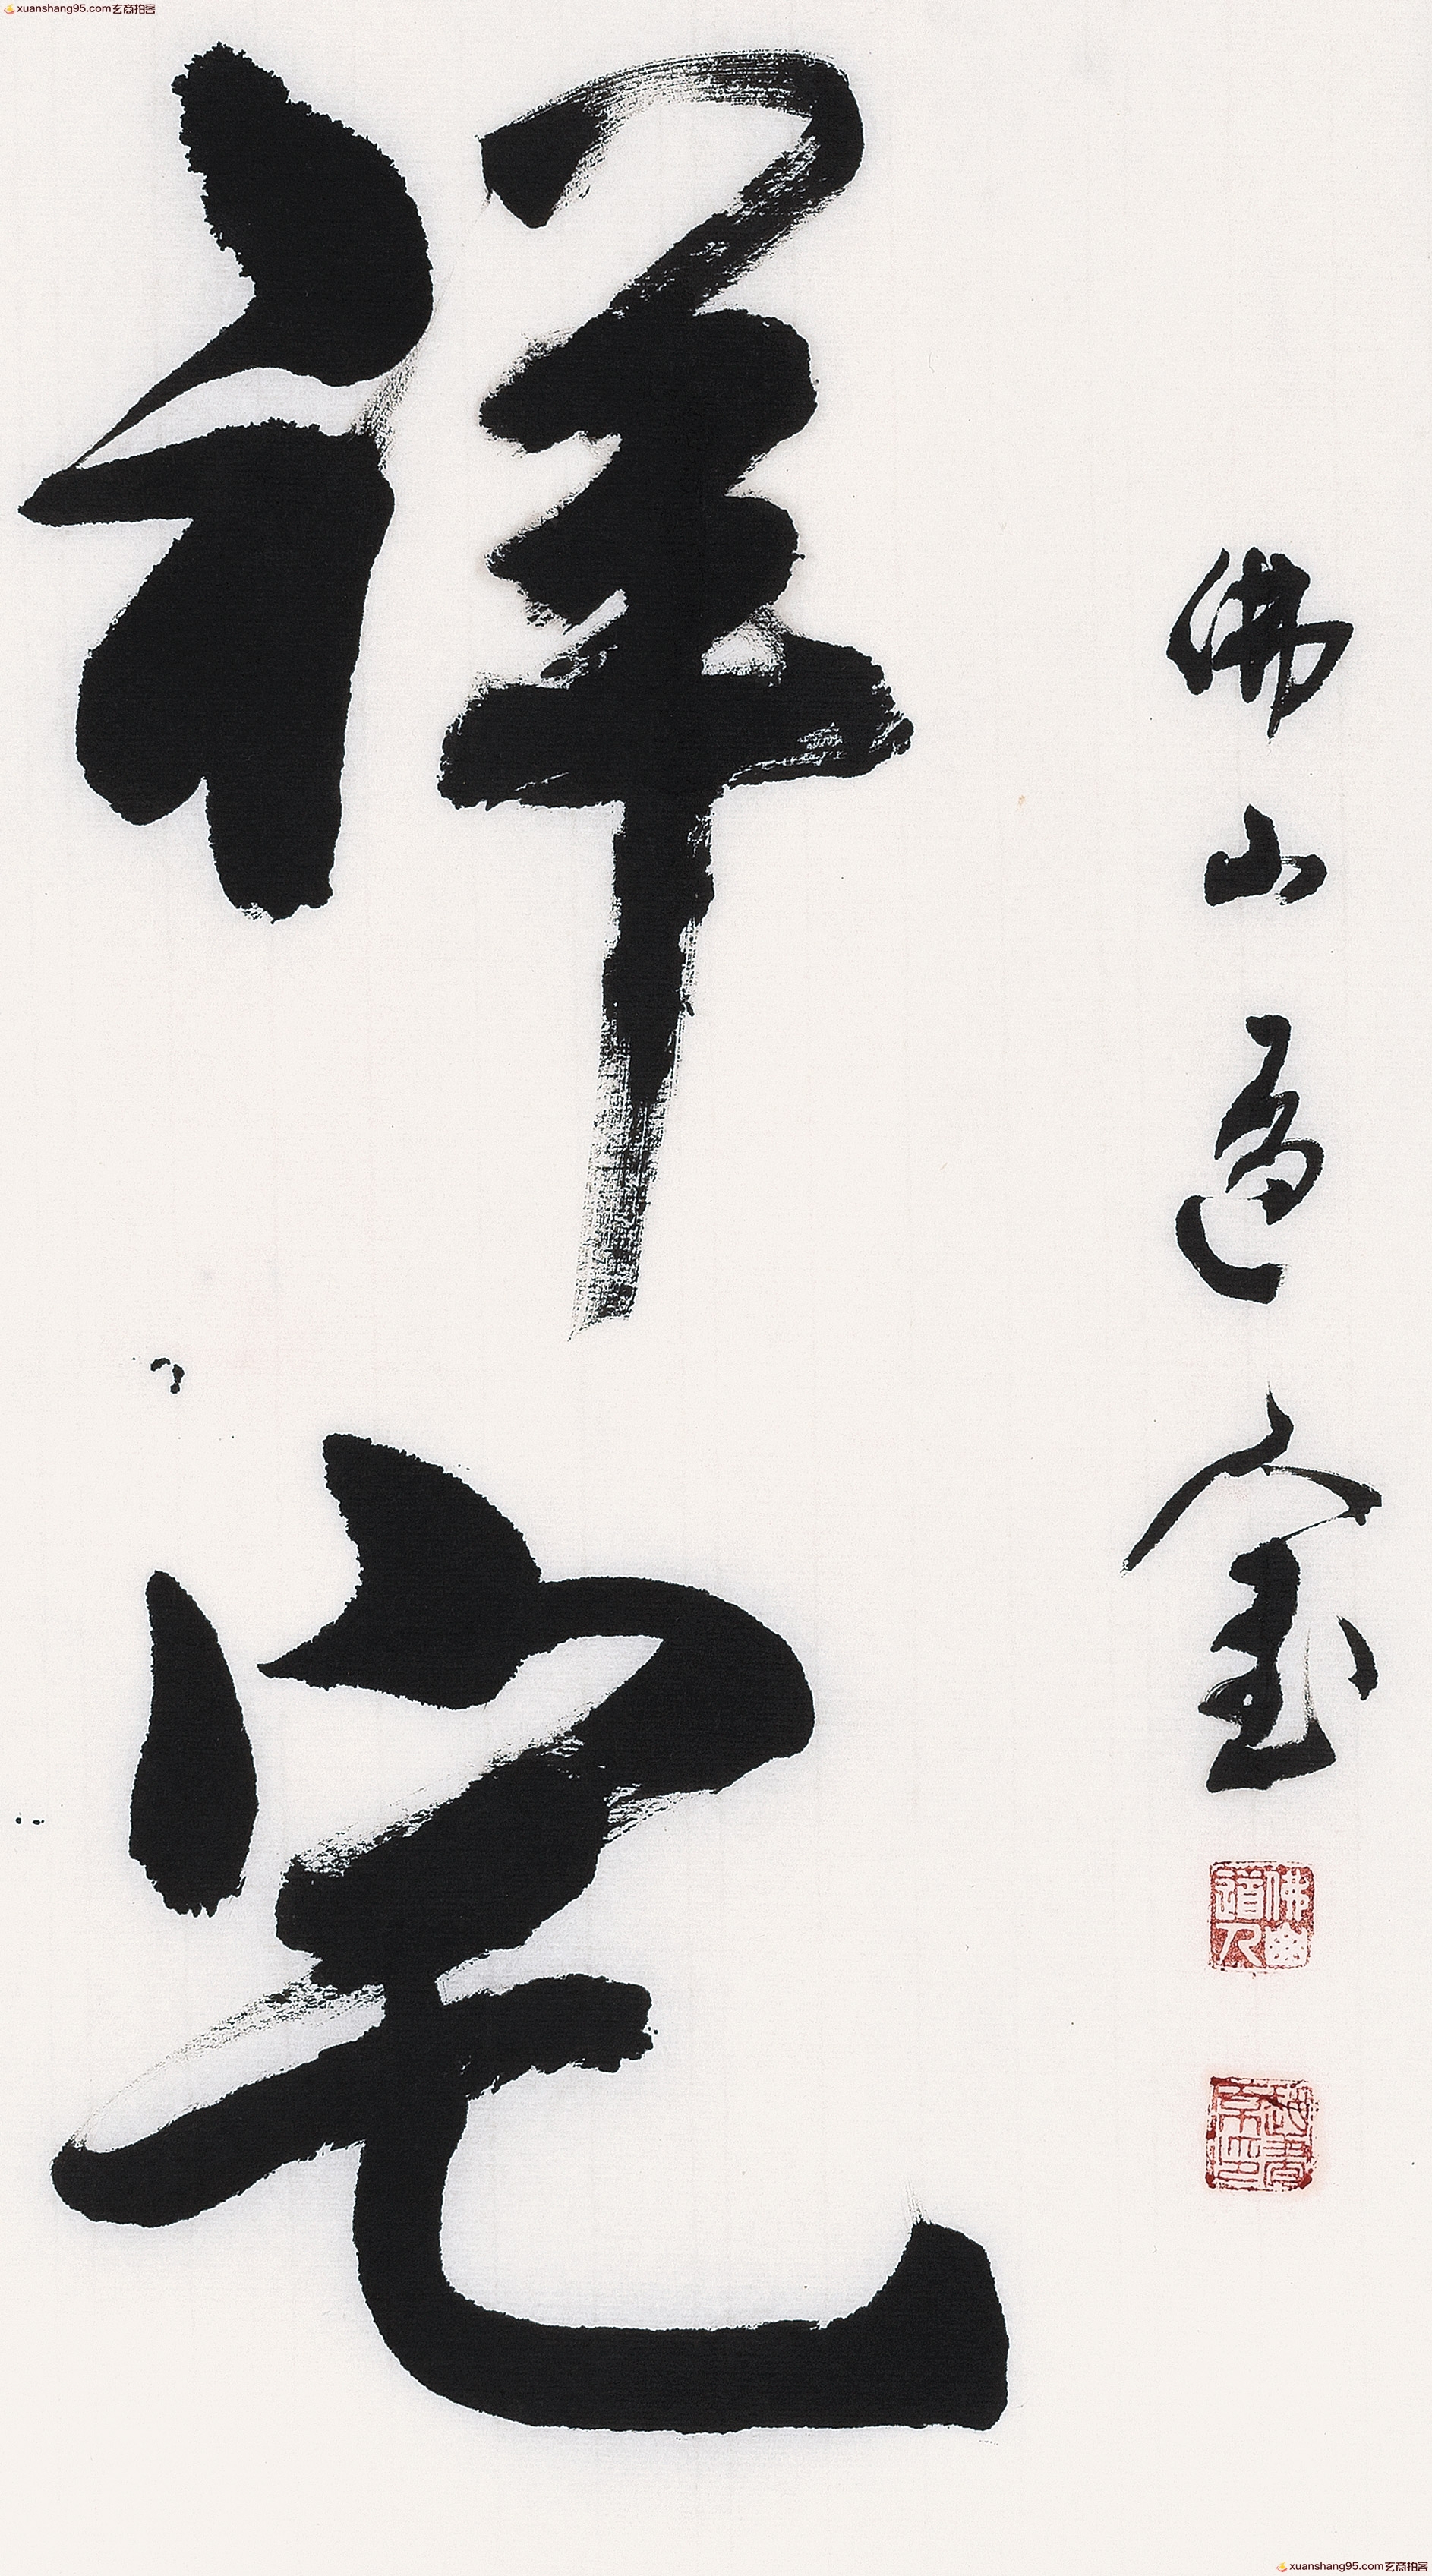 xuanshang95.com玄商拍客
祥宅
佛山道人
佛山
xuanshang95.com玄商拍客